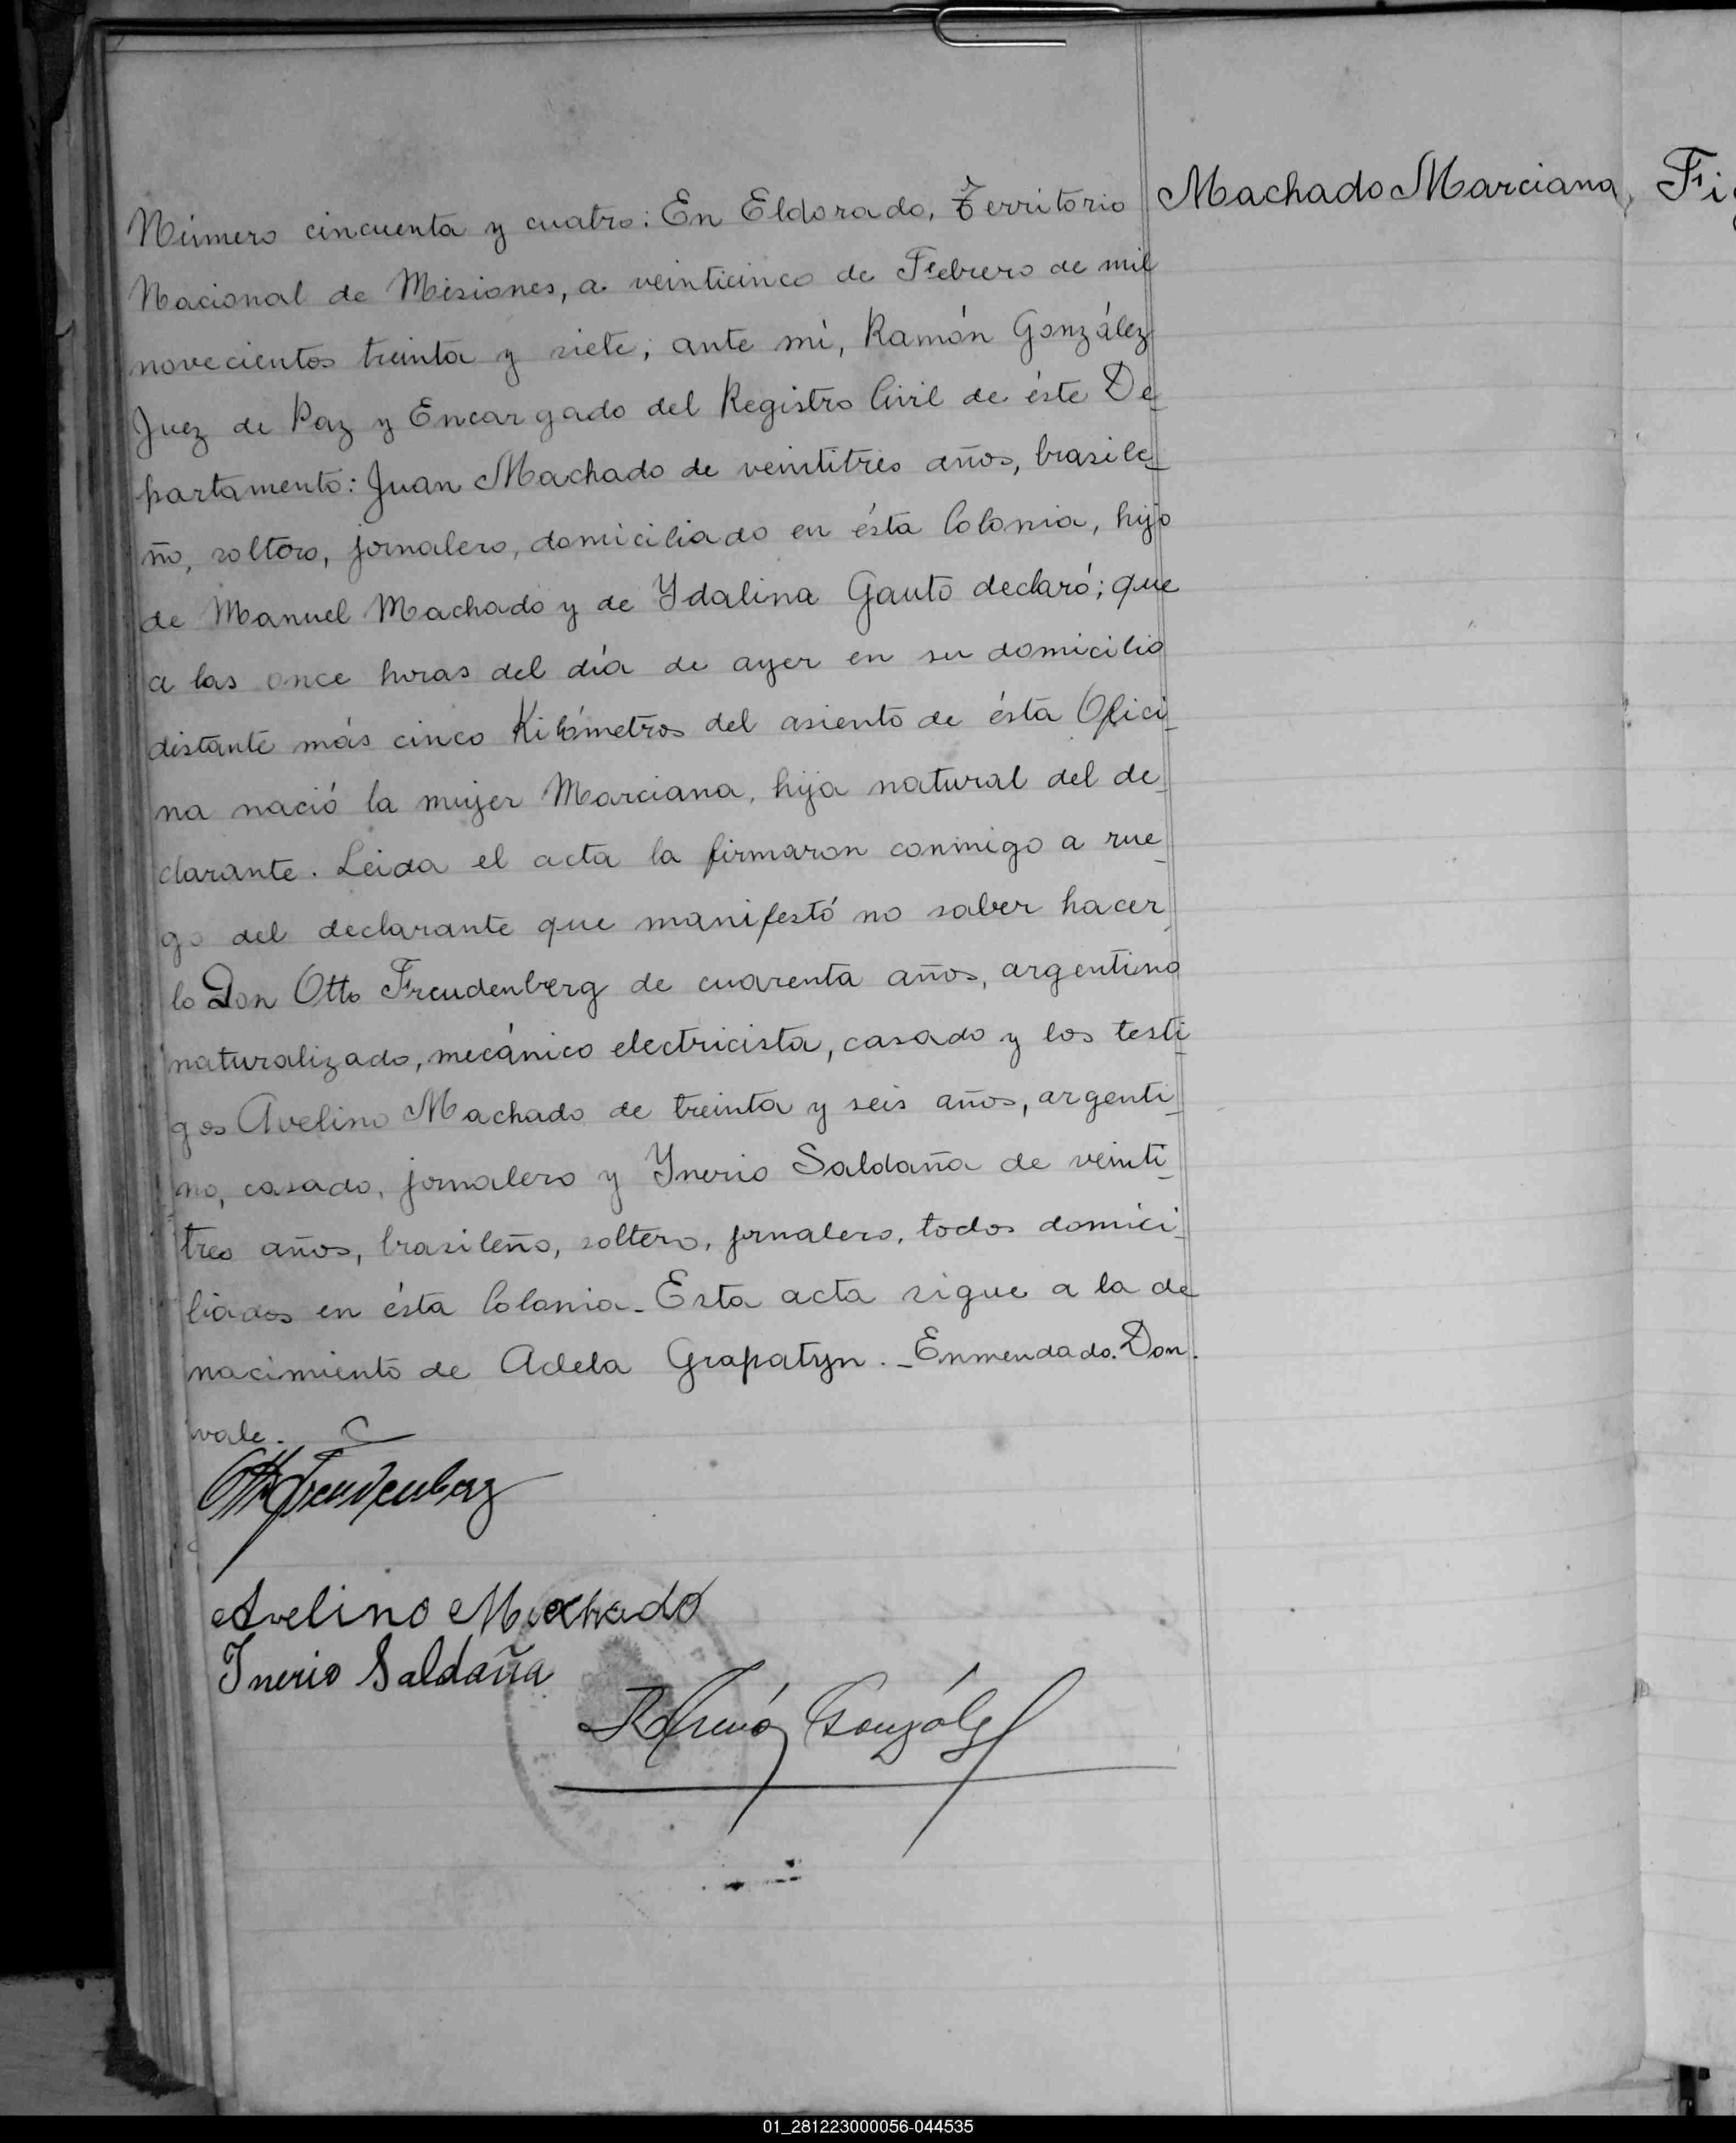 Machado Marciana, Fi
Número cincuenta y cuatro: En Eldorado, Territorio
Nacional de Misiones, a veinticinco de Febrero de mil
novecientos treinta y siete; ante mi, Ramón González
Juez de Paz y Encargado del Registro Civil de éste De-
partamento: Juan Machado de veintitrés años, brasile-
ño, soltero, jornalero, domiciliado en ésta Colonia, hijo
de Manuel Machado y de Ydalina Gauto declaró; que
a las once horas del día de ayer en su domicilio
distante más cinco Kilómetros del asiento de ésta Ofici-
na nació la mujer Marciana, hija natural del de-
clarante. Leida el acta la firmaron conmigo a rue-
go del declarante que manifestó no saber hacer-
lo Don Otto Freudenberg de cuarenta años, argentino
naturalizado, mecánico electricista, casado y los testi-
gos Avelino Machado de treinta y seis años, argenti-
no, casado, jornalero y Ynerio Saldaña de veinti-
tres años, brasileño, soltero, jornalero, todos domici-
liados en ésta Colonia_ Esta acta sigue a la de
nacimiento de Adela Grapatyn._ Enmendado. Don.
vale.
Otto Freudenberg
Avelino Machado
Inerio Saldaña
Ramón González
01_281223000056-044535